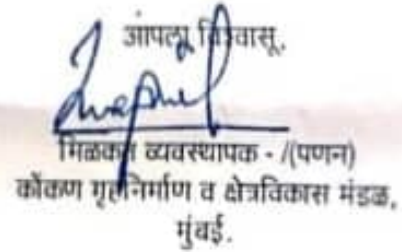 आपला विश्वासू,
मिळकत व्यवस्थापक - /(पणन)
कोंकण गृहनिर्माण व क्षेत्रविकास मंडळ,
मुंबई.